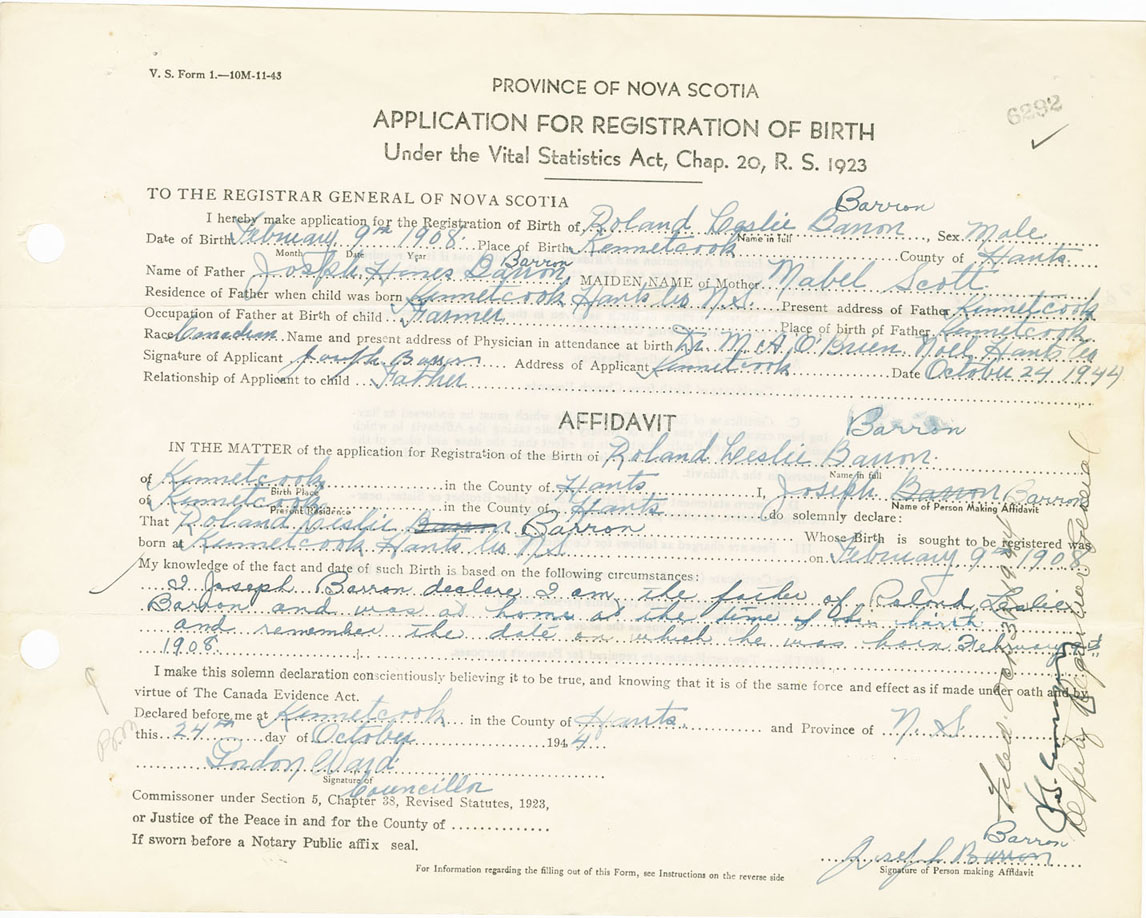 V. S. Form 1.—10M-11-43
PROVINCE OF NOVA SCOTIA
6292
APPLICATION FOR REGISTRATION OF BIRTH
Under the Vital Statistics Act, Chap. 20, R. S. 1923
TO THE REGISTRAR GENERAL OF NOVA SCOTIA
Barron
I hereby make application for the Registration of Birth of Roland Leslie Barron, Sex Male
Name in full
Date of Birth February 9th 1908. Place of Birth Kennetcook County of Hants
Month Date Year
Barron
Name of Father Joseph Hines Barron, MAIDEN NAME of Mother Mabel Scott
Residence of Father when child was born Kennetcook Hants Co N.S. Present address of Father Kennetcook
Occupation of Father at Birth of child Farmer Place of birth of Father Kennetcook
Race Canadian Name and present address of Physician in attendance at birth Dr. M A O'Brien Noel Hants Co
Signature of Applicant Joseph Barron Address of Applicant Kennetcook Date October 24 1944
Relationship of Applicant to child Father
AFFIDAVIT
Barron
IN THE MATTER of the application for Registration of the Birth of Roland Leslie Barron
Name in full
of Kennetcook in the County of Hants I, Joseph Barron Barron
Birth Place
Name of Person Making Affidavit
of Kennetcook in the County of Hants do solemnly declare:
Present Residence
That Roland Leslie Barron Barron Whose Birth is sought to be registered was
born at Kennetcook Hants Co N.S. on February 9th 1908
My knowledge of the fact and date of such Birth is based on the following circumstances:
I Joseph Barron declare I am the father of Roland Leslie
Barron and was at home at the time of his birth
and remember the date on which he was born February 9th
1908.
I make this solemn declaration conscientiously believing it to be true, and knowing that it is of the same force and effect as if made under oath and by
virtue of The Canada Evidence Act.
Declared before me at Kennetcook in the County of Hants and Province of N.S.
this 24th day of October 1944
Gordon Ward
Signature of
Councillor
Commissoner under Section 5, Chapter 38, Revised Statutes, 1923,
or Justice of the Peace in and for the County of
If sworn before a Notary Public affix seal.
Barron
Joseph Barron
Signature of Person making Affidavit
For Information regarding the filling out of this Form, see Instructions on the reverse side
Filed Oct 1944
Deputy Registrar General